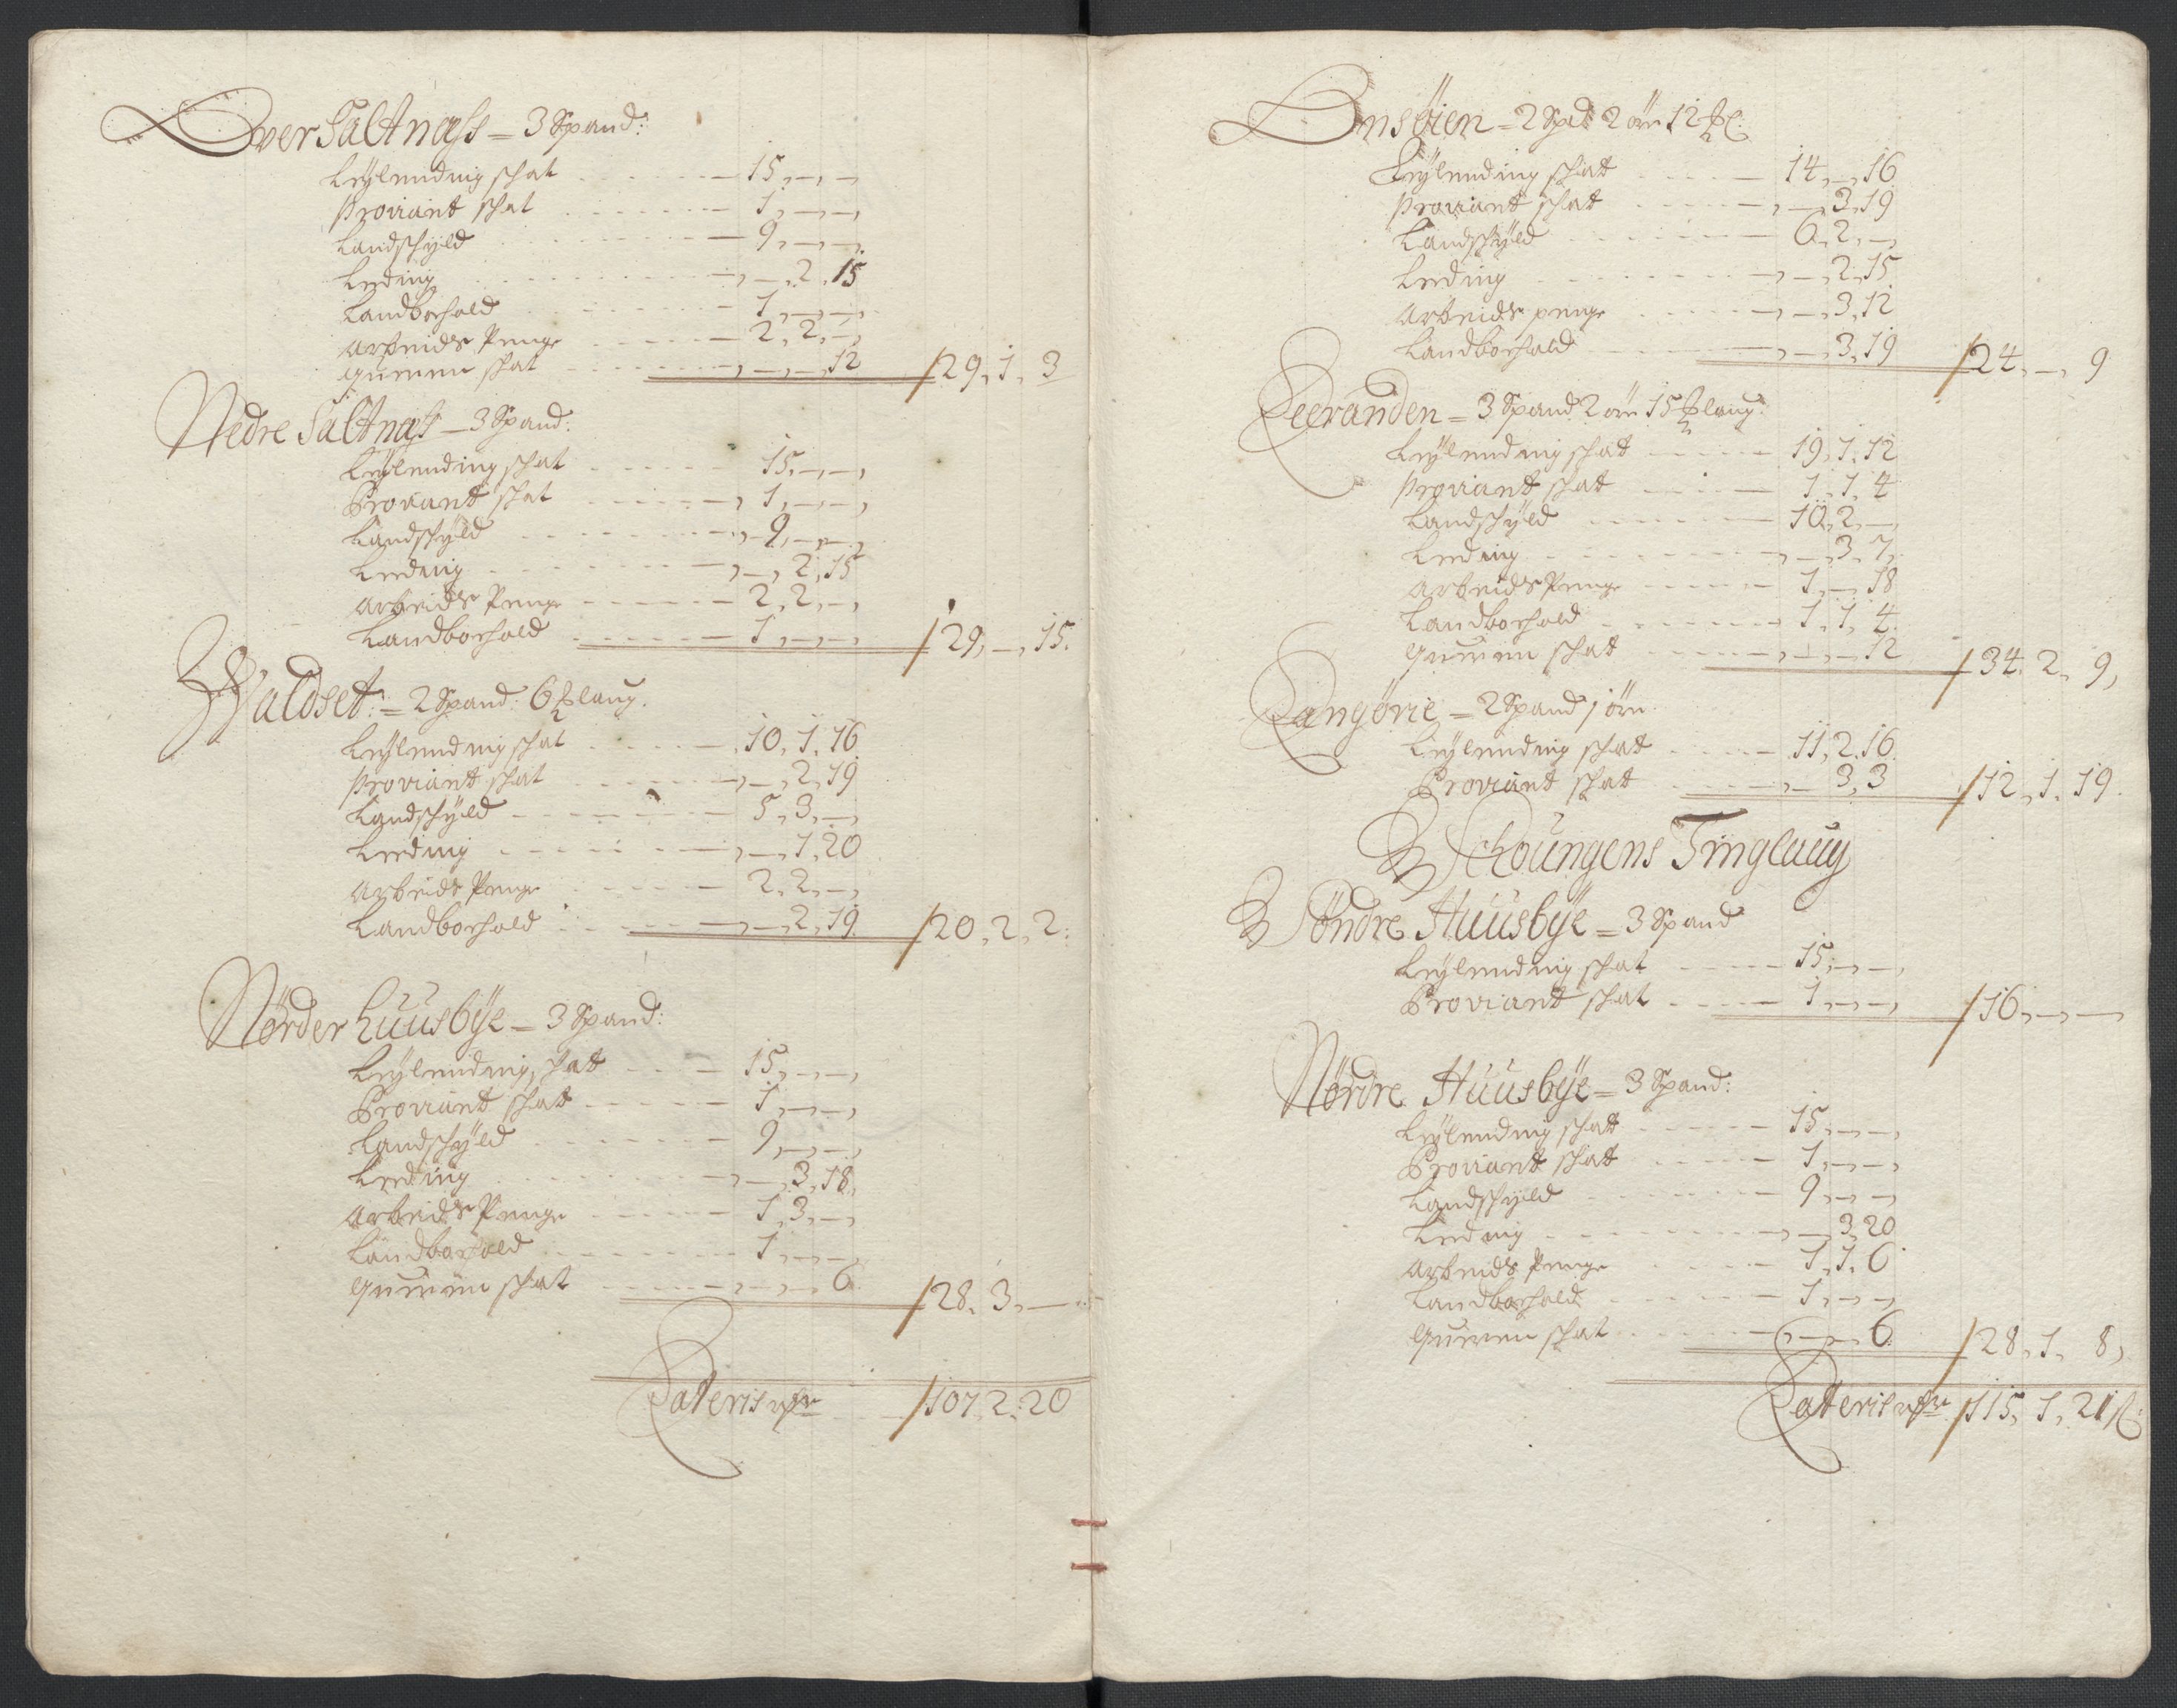 Over Saltnæss = 3 Spand:
Leylending schat - - - 15,-,-
Proviant schat - - - 1,-,-
Landschyld - - - 9,-,-
Leding - - - -,2,15
Landborhold - - - 1,-,-
Arbeids Penge - - - 2,2,-
Quernn schat - - - -,-,12 29,1,3
Nedre Saltnæss - 3 Spand:
Leylending schat - - - 15,-,-
Proviant schat - - - 1,-,-
Landschyld - - - 9,-,-
Leding - - - -,2,15
Arbeids Penge - - - 2,2,-
Landborhold - - - 1,-,- 29,-,15.
Waldset: = 2 Spand: 6 laug.
Leylending schat - - - 10,1,16
Proviant schat - - - -,2,19
Landschyld - - - 5,3,-
Leding - - - -,1,20
Arbeids Penge - - - 2,2,-
Landborhold - - - -,2,19 20,2,2:
Nörder huusbÿe = 3 Spand:
Leylending schat - - - 15,-,-
Proviant schat - - - 1,-,-
Landschyld - - - 9,-,-
Leding - - - -,3,18,
Arbeids Penge - - - 1,3,-
Landborhold - - - 1,-,-
Quernn schat - - - -,-,6 28,3,-
Lateris 107,2,20
Onsöien = 2 Spd 2 öre 12
Leylending schat - - - 14,-,16
Proviant schat - - - -,3,19
Landschyld - - - 6,2,-
Leding - - - -,2,15
Arbeids penge - - - -,3,12
Landborhold - - - -,3,19 24,-,9
Leeranden = 3 Spand 2 öre 15 laug:
Leylending schat - - - 19,1,12
Proviant schat - - - 1,1,4
Landschyld - - - 10,2,-
Leding - - - -,3,7
Arbeids Penge - - - 1,-,18
Landborhold - - - 1,1,4
Quernn schat - - - -,-,12 34,2,9,
Langörie = 2 Spand 1 öre
Leylending schat - - - 11,2,16
Proviant schat - - - -,3,3 12,1,19.
Schoungens Tinglaug
Söndre Huusbÿe = 3 Spand
Leylending schat - - - 15,-,-
Proviant schat - - - 1,-,- 16,-,-
Nördre Huusbÿe = 3 Spand:
Leylending schat - - - 15,-,-
Proviant schat - - - 1,-,-
Landschyld - - - 9,-,-
Leding - - - -,3,20
Arbeids Penge - - - 1,1,6
Landborhold - - - 1,-,-
Quernn schat - - - -,-,6 28,1,8,
Lateris 115,1,21